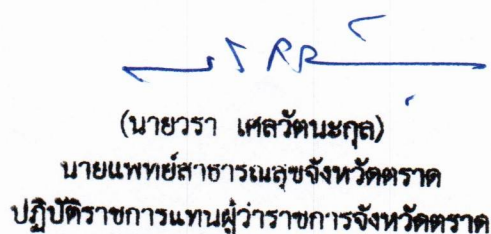 (นายวรา เศลวัตนะกุล)
นายแพทย์สาธารณสุขจังหวัดตราด
ปฏิบัติราชการแทนผู้ว่าราชการจังหวัดตราด